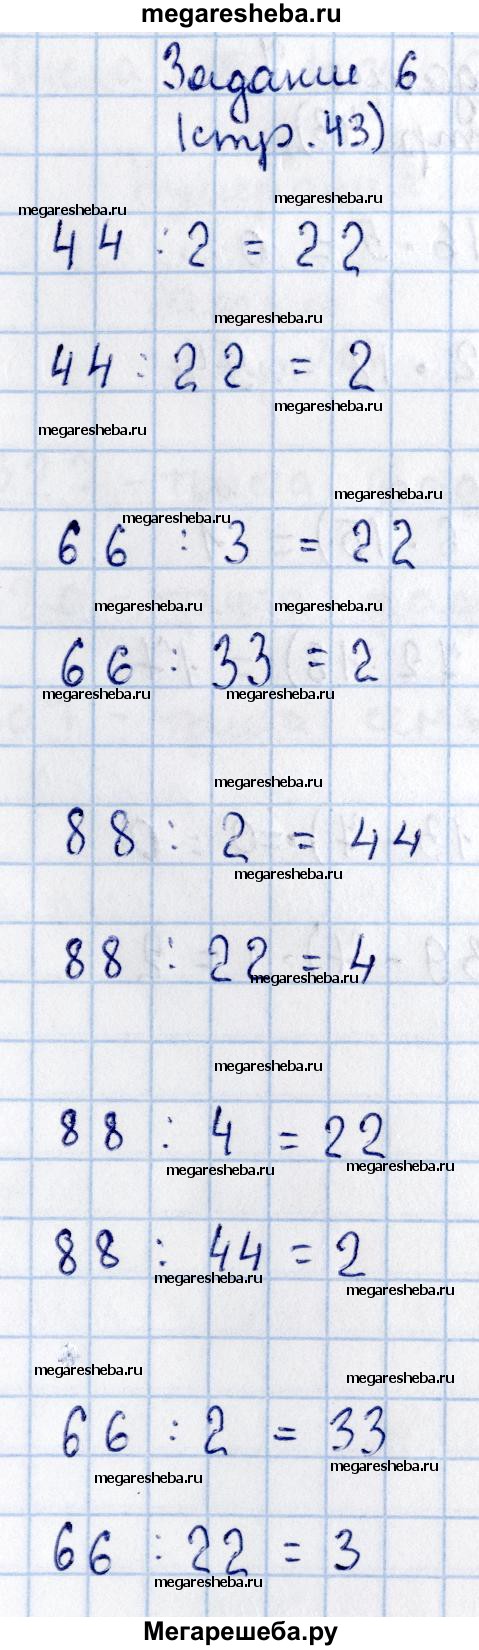 megaresheba.ru
Задание 6
(стр. 43)
megaresheba.ru
megaresheba.ru
44 : 2 = 22
megaresheba.ru
44 : 22 = 2
megaresheba.ru
megaresheba.ru
megaresheba.ru
megaresheba.ru
66 : 3 = 22
megaresheba.ru megaresheba.ru
66 : 33 = 2
megaresheba.ru megaresheba.ru
megaresheba.ru
88 : 2 = 44
megaresheba.ru
88 : 22 = 4
megaresheba.ru
megaresheba.ru
88 : 4 = 22
megaresheba.ru megaresheba.ru
88 : 44 = 2
megaresheba.ru megaresheba.ru
megaresheba.ru megaresheba.ru
66 : 2 = 33
megaresheba.ru megaresheba.ru
66 : 22 = 3
megaresheba.ru
Мегарешеба.ру